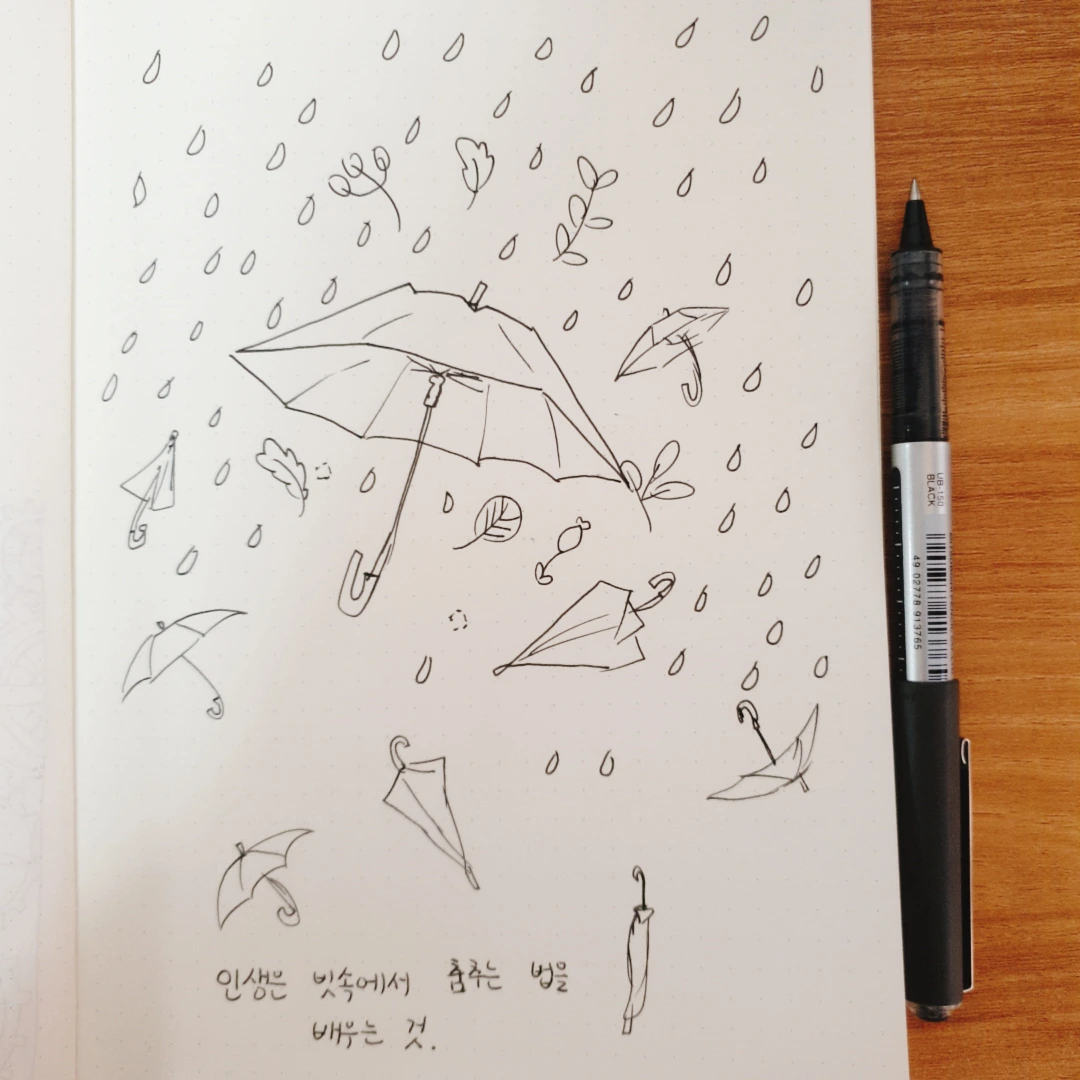 인생은 빗속에서 춤추는 법을
배우는 것.
UB-150
BLACK
49 02778 913765